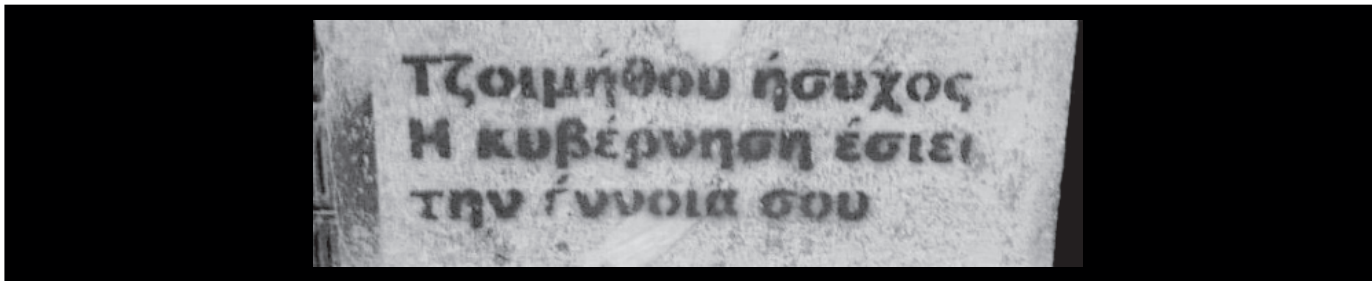 Τζοιμήθου ήσυχος
Η κυβέρνηση έσιει
την έννοιά σου